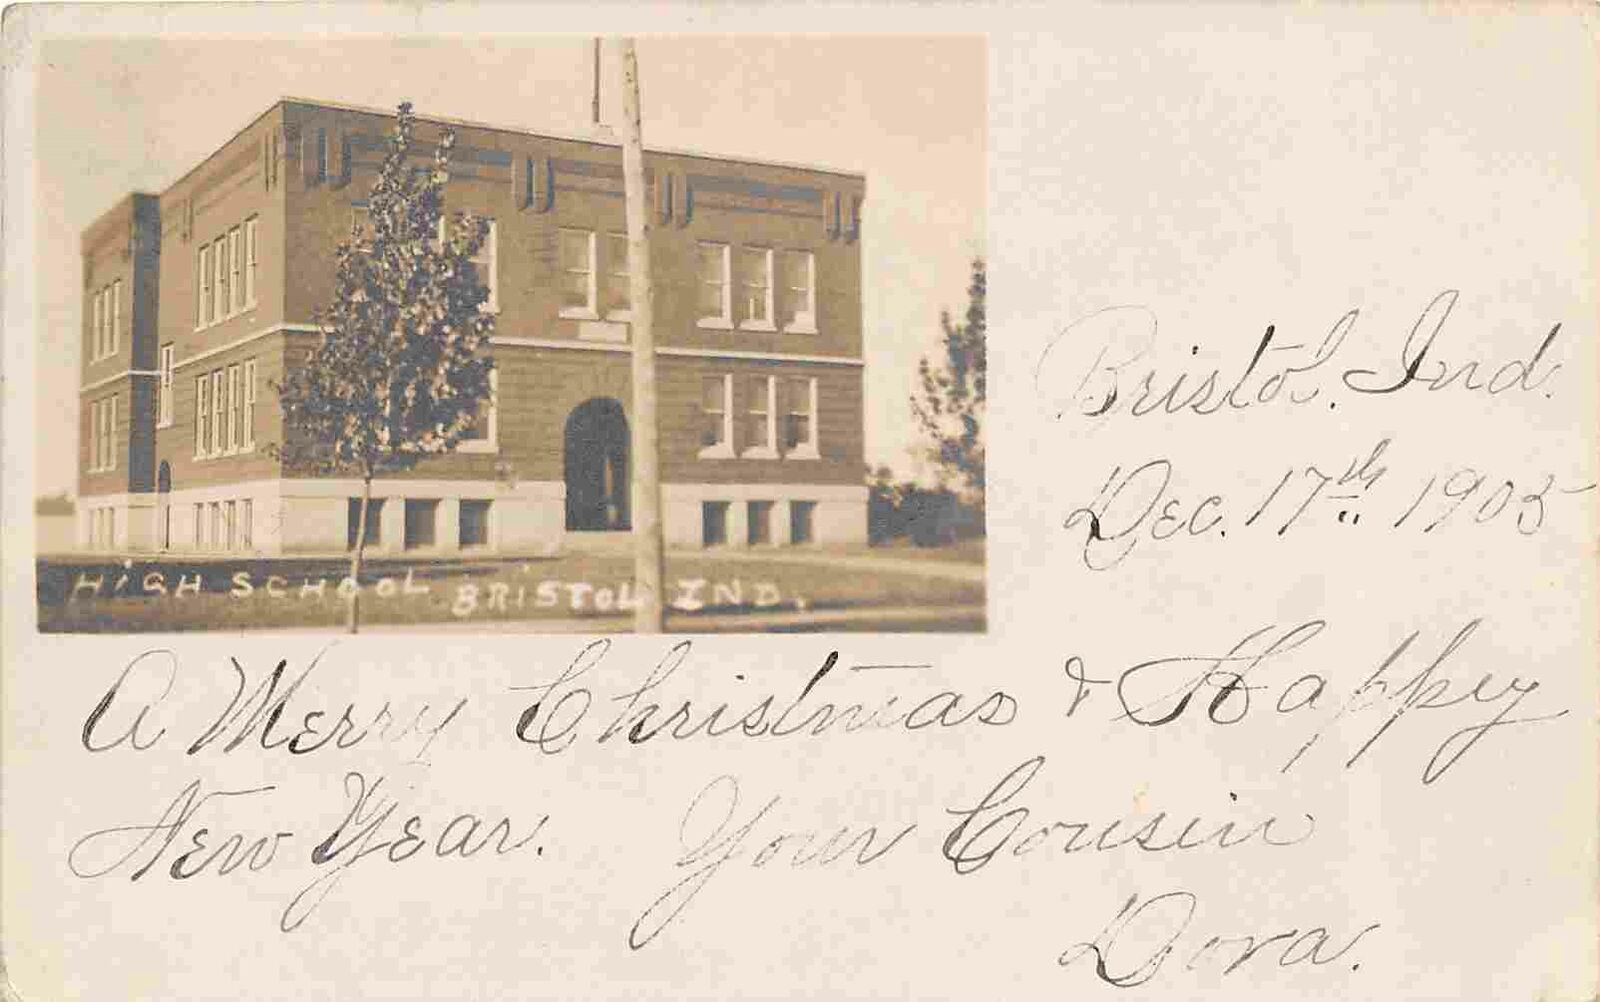 HIGH SCHOOL BRISTOL IND.
Bristol. Ind.
Dec. 17th 1905
A Merry Christmas & Happy
New Year. Your Cousin
Dora.